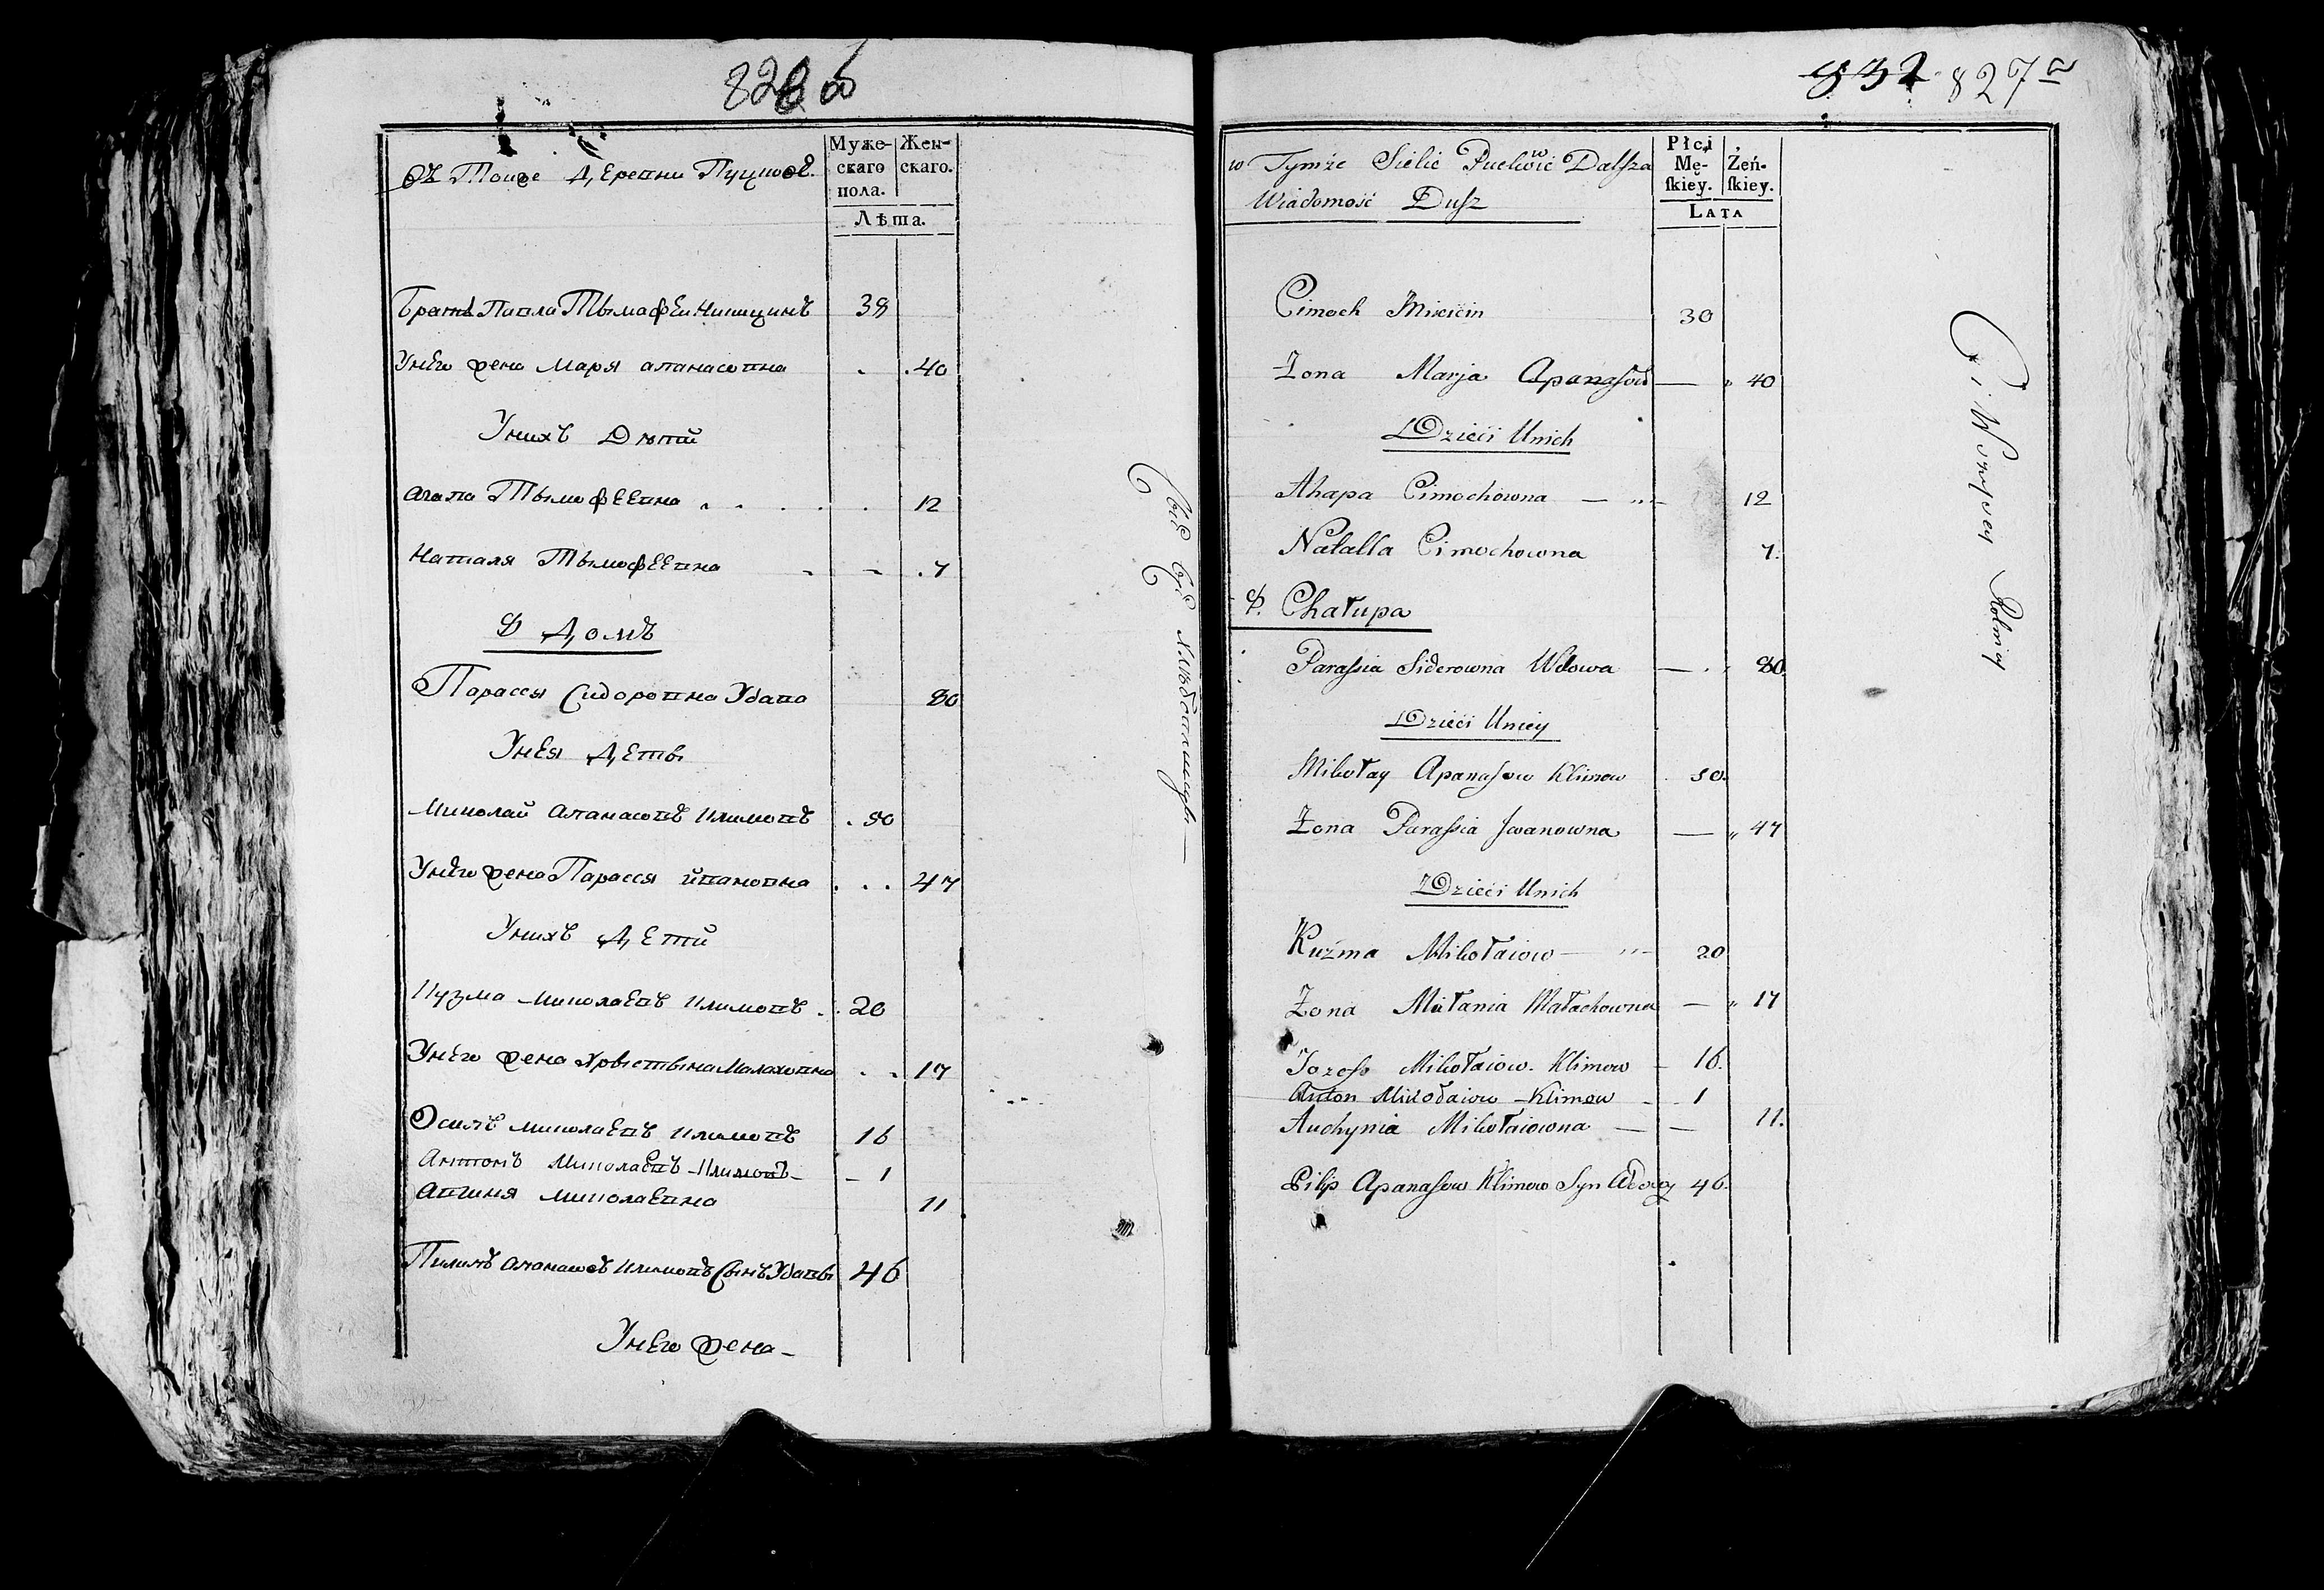 826 об
Въ Тойже Деревни Пуцков.
Муже-
скаго
пола.
Жен-
скаго.
Лѣта.
Братъ Павла Тымафеи Никицинъ 38
Унего жена Маря апанасовна 40
Унихъ Дѣтй
агапа Тымофеевна 12
Наталя Тымофеевна 7
9 Домъ
Парасся Сидоровна Удава 80
Унея Деты
Миколай апанасовъ Климовъ 50
Унего жена Парасся йвановна 47
Унихъ Детй
Кузма Миколаевъ Климовъ 20
Унего жена Хрыстына Малаховна 17
Осипъ Миколаевъ Климовъ 16
Антонъ Миколаевъ Климовъ 1
авгиня Миколаевна 11
Пилипъ апанасовъ Климовъ Сынъ Удавы 46
Унего жена
Сыи Хлѣбопашцы
832 827 а
w Tymże Sielie Puckowie Dalsza
Wiadomość Dusz
Płci
Mę-
skiey.
Żeń-
skiey.
Lata
Cimoch Mikicin 30
Żona Marja Apanasow 40
Dzieci Unich
Ahapa Cimochowna 12
Natalla Cimochowna 7.
9. Chałupa
Parassia Siderowna Wdowa 80.
Dzieci Uniey
Mikołay Apanasow Klimow 50.
Żona Parassia Jwanowna 47
Dzieci Unich
Kuźma Mikołaiow 20
Żona Małania Małachowna 17
Jozef Mikołaiow. Klimow 16.
Anton Mikołaiow Klimow 1
Auchynia Mikołaiowna 11.
Pilip Apanasow Klimow Syn Wdowy 46.
Ci Wszyscy Rolnicy